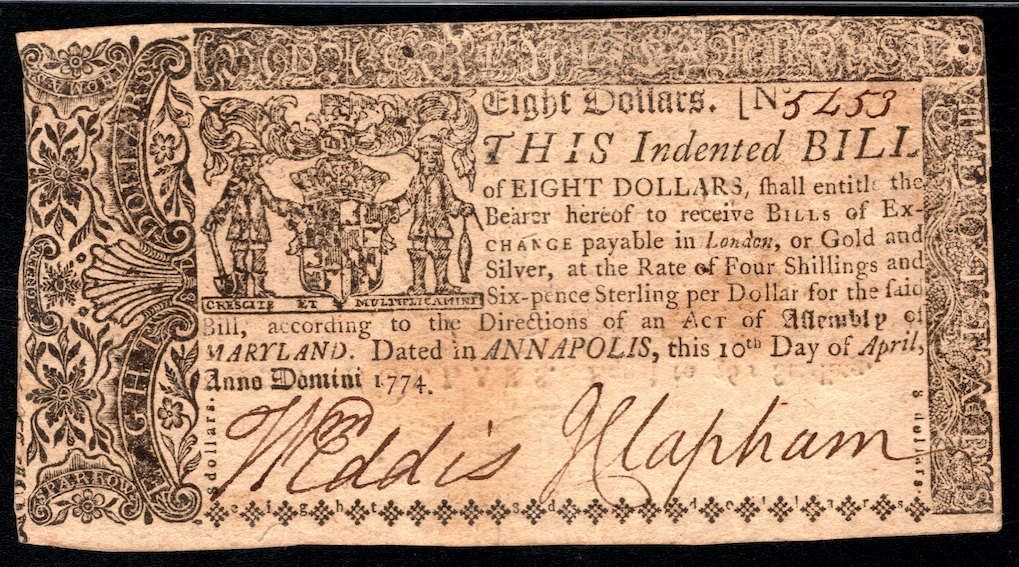 Eight Dollars. [No 5453
THIS Indented BILL
of EIGHT DOLLARS, ſhall entitle the
Bearer hereof to receive BILLS of Ex-
CHANGE payable in London, or Gold and
Silver, at the Rate of Four Shillings and
CRESCITE ET MULTIPLICAMINI
Six-pence Sterling per Dollar for the ſaid
Bill, according to the Directions of an ACT of Aſſembly of
MARYLAND. Dated in ANNAPOLIS, this 10th Day of April,
Anno Domini 1774.
Wm Eddis J Clapham
dollars.
8 dollars.
eight 8 dollars.
DOLLARS
EIGHT
SPARROW